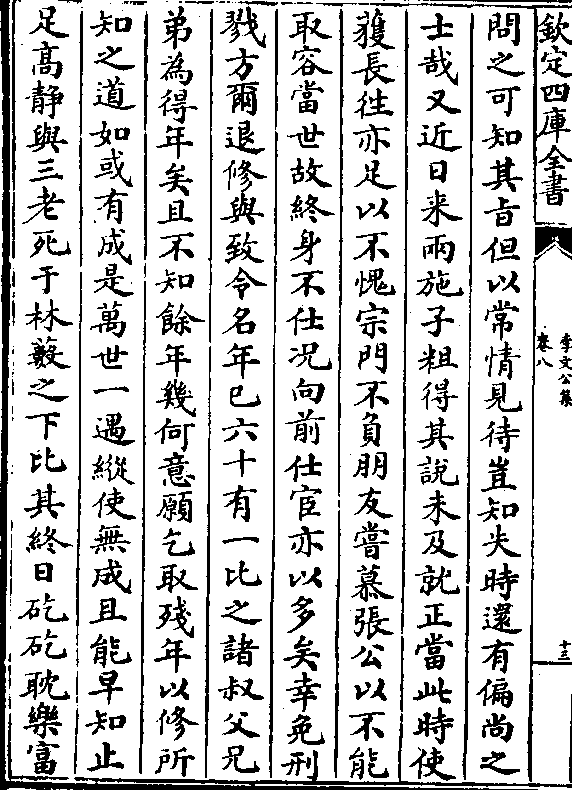 欽定四庫全書
李文公集
卷八
十三
問之可知其旨但以常情見待豈知失時還有偏尚之
士哉又近日来兩施子粗得其說未及就正當此時使
獲長徃亦足以不愧宗門不負朋友嘗慕張公以不能
取容當世故終身不仕况向前仕宦亦以多矣幸免刑
戮方爾退修與致令名年已六十有一比之諸叔父兄
弟為得年矣且不知餘年幾何意願乞取殘年以修所
知之道如或有成是萬世一遇縱使無成且能早知止
足高静與三老死于林藪之下比其終日矻矻耽樂富